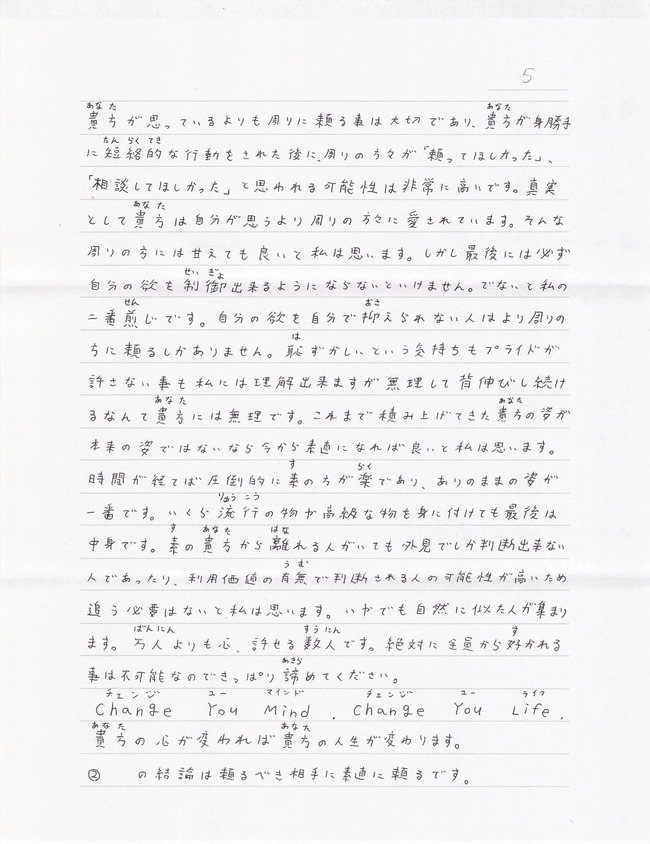 5
貴方が思っているよりも周りに頼る事は大切であり、貴方が身勝手
に短絡的な行動をされた後に、周りの方々が「頼ってほしかった」、
「相談してほしかった」と思われる可能性は非常に高いです。真実
として貴方は自分が思うより周りの方々に愛されています。そんな
周りの方には甘えても良いと私は思います。しかし最後には必ず
自分の欲を制御出来るようにならないといけません。でないと私の
二番煎じです。自分の欲を自分で抑えられない人はより周りの
方に頼るしかありません。恥ずかしいという気持ちもプライドが
許さない事も私には理解出来ますが無理して背伸びし続け
るなんて貴方には無理です。これまで積み上げてきた貴方の姿が
本来の姿ではないなら今から素直になれば良いと私は思います。
時間が経てば圧倒的に素の方が楽であり、ありのままの姿が
一番です。いくら流行の物や高級な物を身に付けても最後は
中身です。素の貴方から離れる人がいても外見でしか判断出来ない
人であったり、利用価値の有無で判断される人の可能性が高いため
追う必要はないと私は思います。いやでも自然に似た人が集まり
ます。万人よりも心許せる数人です。絶対に全員から好かれる
事は不可能なのできっぱり諦めてください。
Change You Mind . Change You Life .
貴方の心が変われば貴方の人生が変わります。
② の結論は頼るべき相手に素直に頼るです。